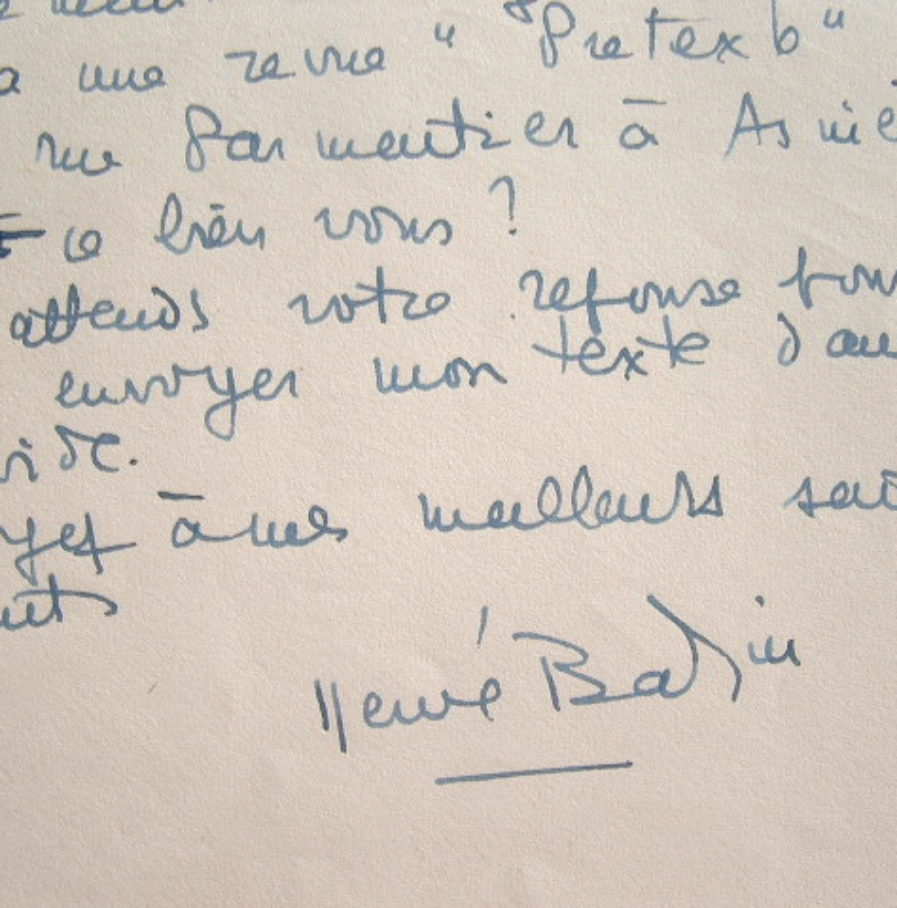 a une revue " Pretexte"
rue Parmentier à Asniè
-ce bien vous ?
attends votre reponse pour
envoyer mon texte dans
vide.
yez à mes meilleurs sen
ents
Hervé Bazin